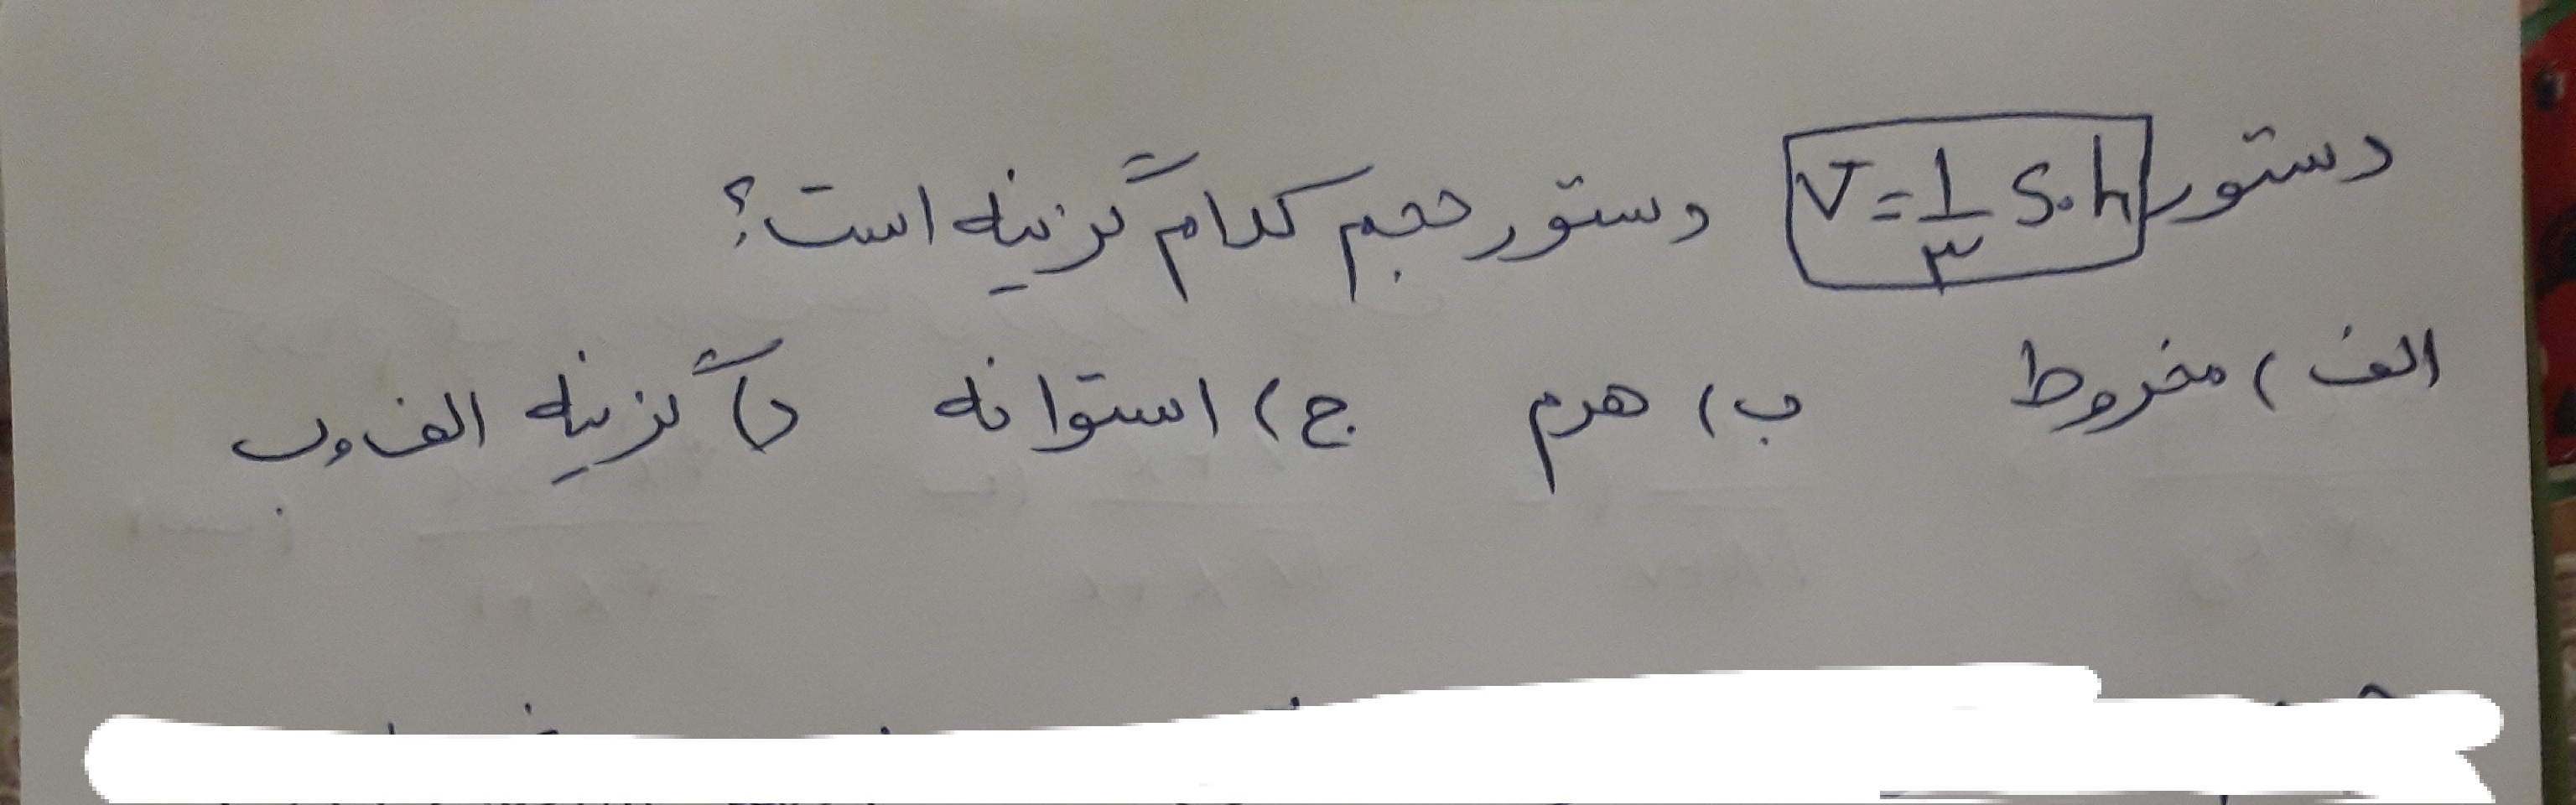 دستور V = ۱/۳ S.h دستور حجم کدام گزینه است؟
الف) مخروط ب) هرم ج) استوانه د) گزینه الف و ب